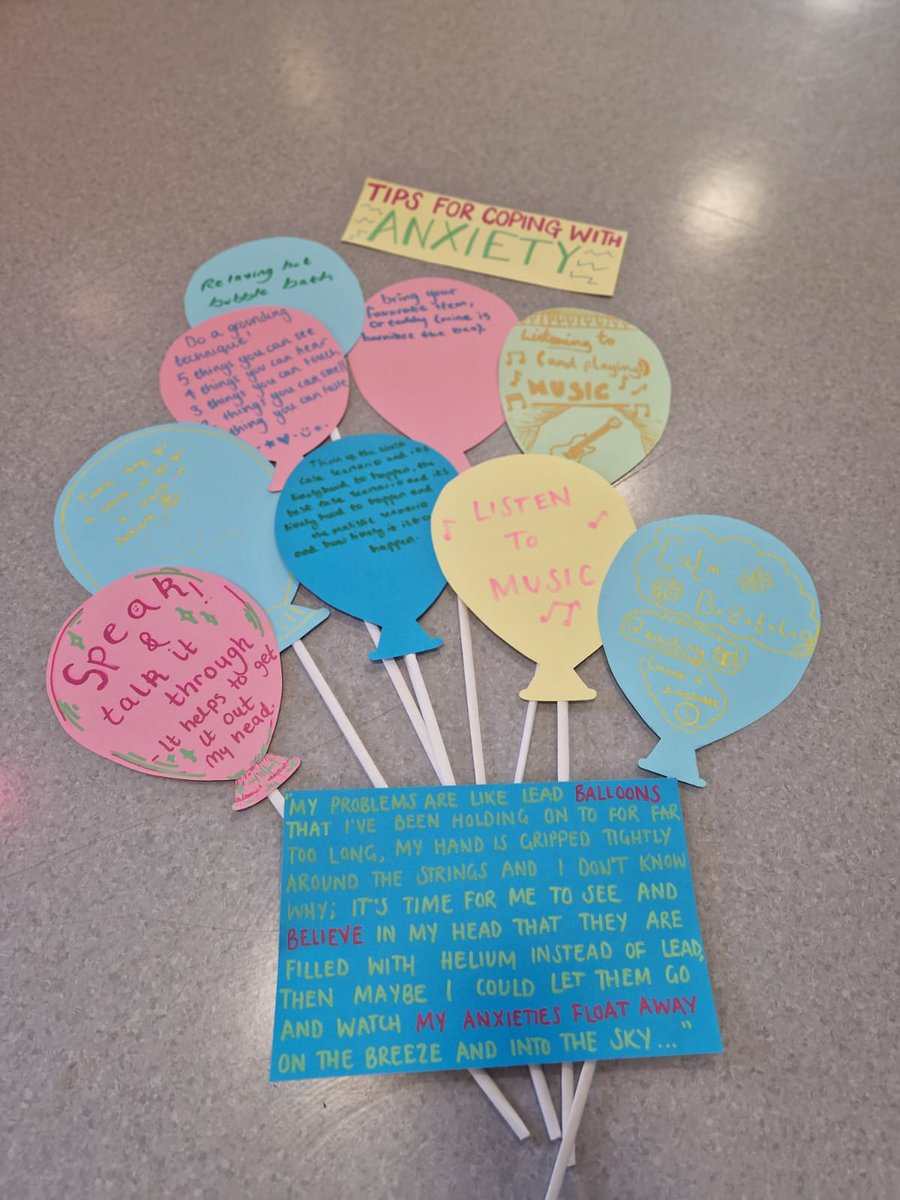 TIPS FOR COPING WITH
ANXIETY
Relaxing hot
bubble bath
Do a grounding
technique!
5 things you can see
4 things you can hear
3 things you can touch
2 things you can smell
thing you can taste
bring your
favorate item,
Or teddy (mine is
the bea).
Listening to
(and playing!)
MUSIC
Think of the worst
case scenario and it's
likelyhood to happen, the
best case scenario and it's
likely hood to happen and
the realistic scenario
and how likely it is to
happen.
LISTEN
TO
MUSIC
Calm
Speak!
&
talk it
through
-It helps to get
it out
my head.
"MY PROBLEMS ARE LIKE LEAD BALLOONS
THAT I'VE BEEN HOLDING ON TO FOR FAR
TOO LONG, MY HAND IS GRIPPED TIGHTLY
AROUND THE STRINGS AND I DON'T KNOW
WHY; IT'S TIME FOR ME TO SEE AND
BELIEVE IN MY HEAD THAT THEY ARE
FILLED WITH HELIUM INSTEAD OF LEAD,
THEN MAYBE I COULD LET THEM GO
AND WATCH MY ANXIETIES FLOAT AWAY
ON THE BREEZE AND INTO THE SKY..."